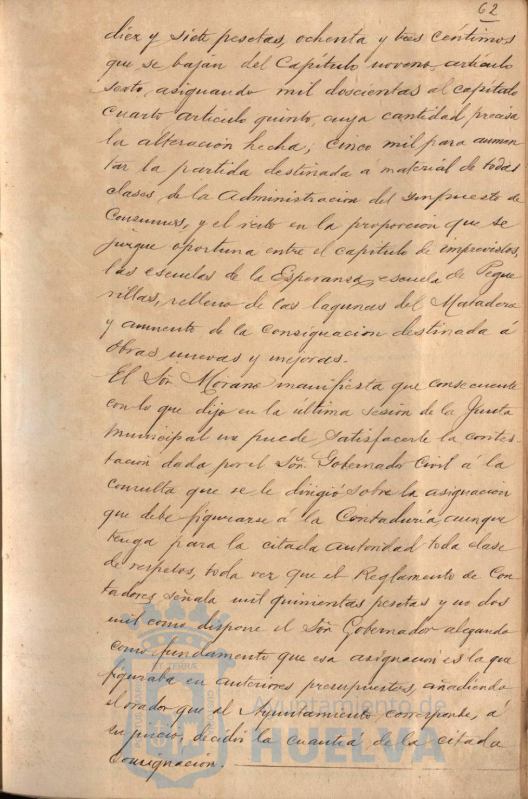 62
diez y siete pesetas, ochenta y tres céntimos
que se bajan del Capítulo noveno, artículo
sexto, asignando mil doscientas al capítulo
cuarto artículo quinto, cuya cantidad precisa
la alteración hecha; cinco mil para aumen
tar la partida destinada a material de todas
clases de la Administracion del Impuesto de
Consumos, y el resto en la proporcion que se
juzgue oportuna entre el capítulo de imprevistos,
las escuelas de la Esperanza, escuela de Pegue
rillas, relleno de las lagunas del Matadero
y aumento de la Consignacion destinada á
obras nuevas y mejoras.-
El Sor. Morano manifiesta que consecuente
con lo que dijo en la última sesión de la Junta
Municipal no puede satisfacerle la contes-
tación dada por el Sor. Gobernador Civil á la
Consulta que se le dirigió sobre la asignacion
que debe figurarse á la Contaduría, aunque
tenga para la citada autoridad toda clase
de respetos, toda vez que el Reglamento de Con
tadores señala mil quinientas pesetas y no dos
mil como dispone el Sor. Gobernador alegando
como fundamento que esa asignación es la que
figuraba en anteriores presupuestos, añadiendo
el orador que al Ayuntamiento corresponde, á
su juicio, decidir la cuantía de la citada
Consignacion.
Ayuntamiento de
HUELVA